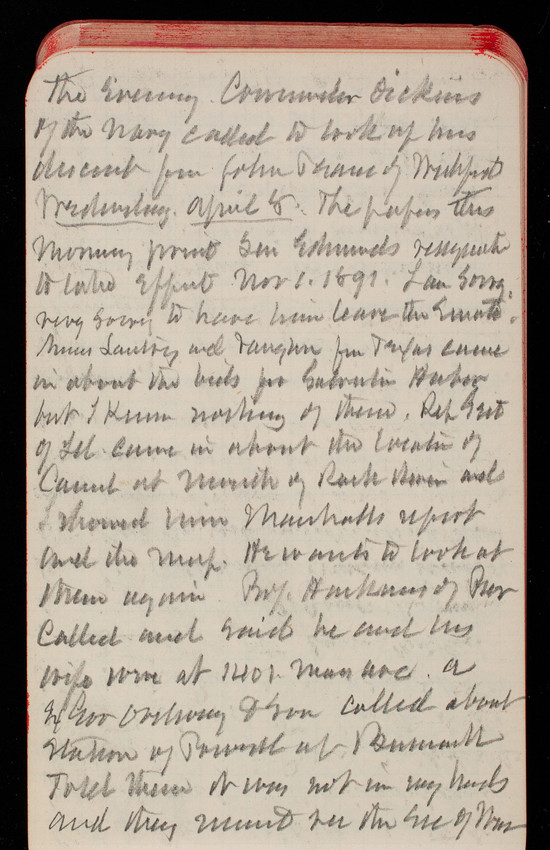 the Evening. Commander Dickins
of the Navy called to look up his
descent from John Deane of
Wednesday. April 8. The papers this
morning print Sen Edmunds
to take effect Nov 1. 1891. I am sorry,
very sorry to have him leave the Senate.
and Vaughn from Texas came
in about the bids for Galveston Harbor
but I know nothing of them. Rep Gest
of Ill came in about the location of
Canal at mouth of Rock River and
I showed him Marshalls report
and the map. He wants to look at
them again Prof. Harkness of
called and said he and his
wife were at 1401. Mass ave. a
Ex Gov Ordway & Son called about
Station of at Bismarck
Told them it was not in my hands
and they must see the Sec of War